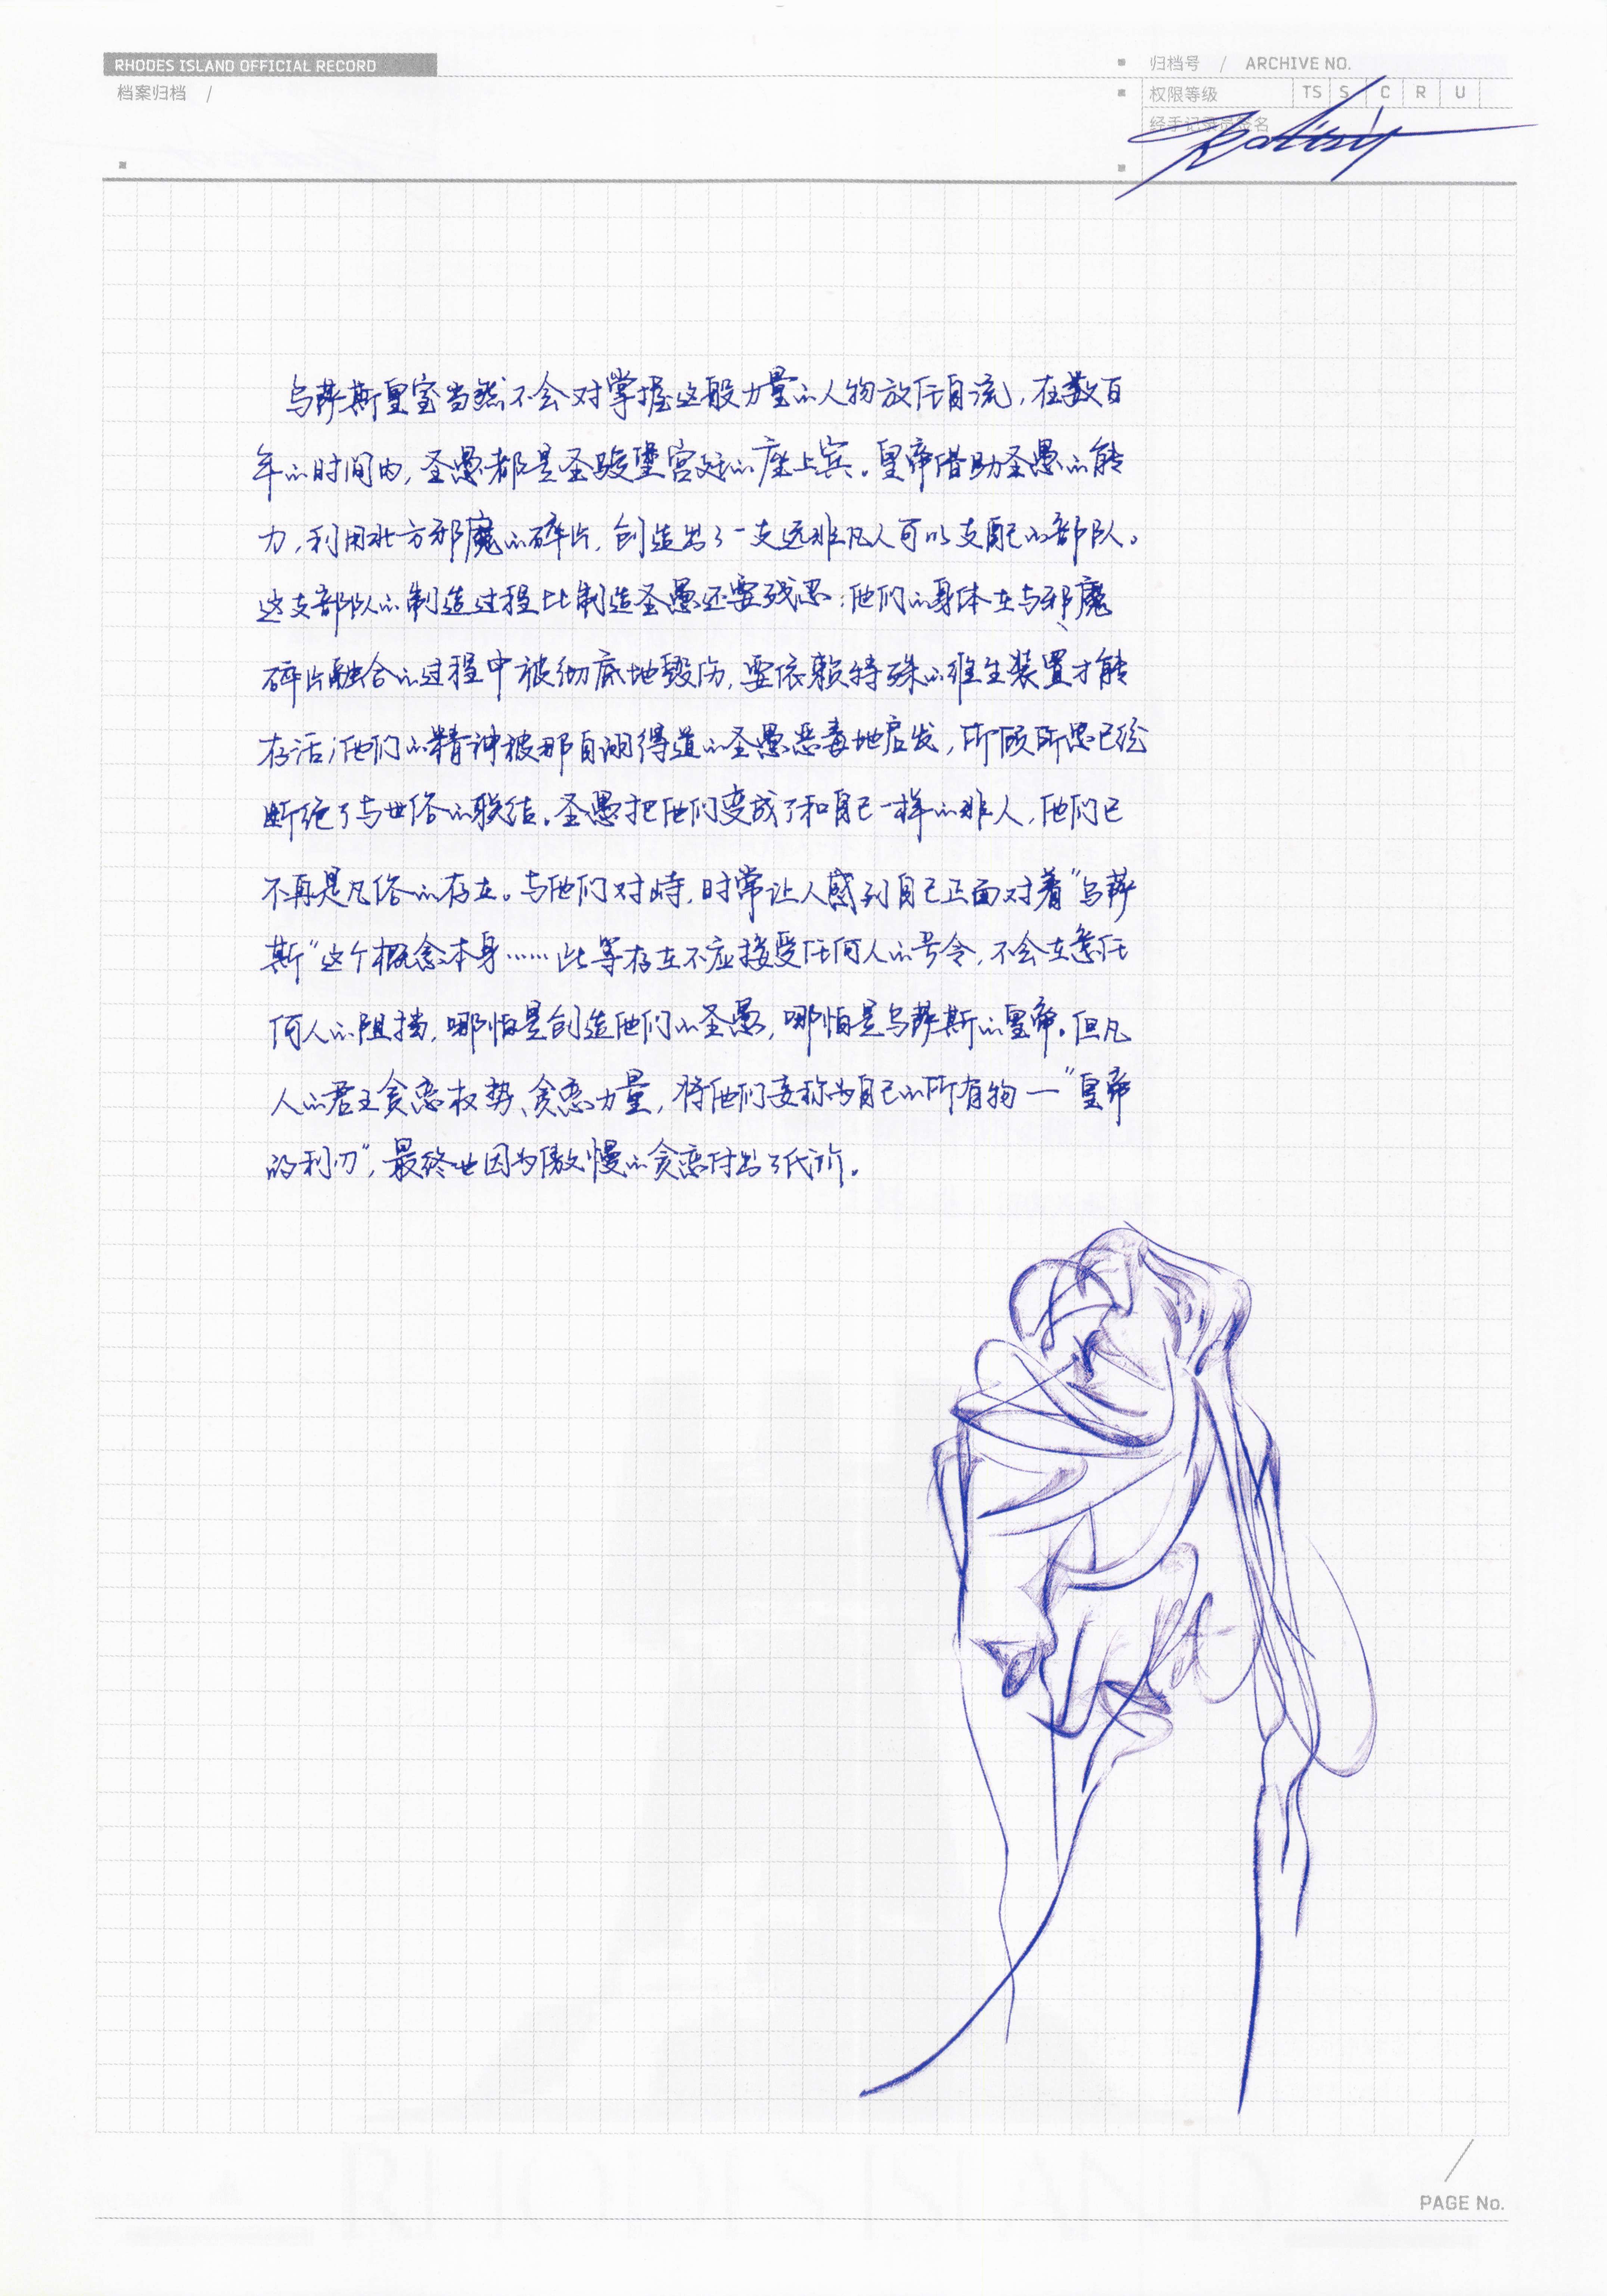 RHODES ISLAND OFFICIAL RECORD
档案归档 /
归档号 / ARCHIVE NO.
权限等级 TS S C R U
经手记录员签名
乌萨斯皇室当然不会对掌握这般力量的人物放任自流，在数百
年的时间内，圣愚都是圣骏堡宫廷的座上宾。皇帝借助圣愚的能
力，利用北方邪魔的碎片，创造出了一支远非凡人可以支配的部队。
这支部队的制造过程比制造圣愚还要残忍：他们的身体在与邪魔
碎片融合的过程中被彻底地毁伤，要依赖特殊的维生装置才能
存活；他们的精神被那自诩得道的圣愚恶毒地启发，所顾所思已经
断绝了与世俗的联结。圣愚把他们变成了和自己一样的非人，他们已
不再是凡俗的存在。与他们对峙，时常让人感到自己正面对着“乌萨
斯”这个概念本身……此等存在不应接受任何人的号令，不会在意任
何人的阻挡，哪怕是创造他们的圣愚，哪怕是乌萨斯的皇帝。但凡
人的君王贪恋权势、贪恋力量，将他们妄称为自己的所有物—“皇帝
的利刃”，最终也因为傲慢的贪恋付出了代价。
PAGE No.